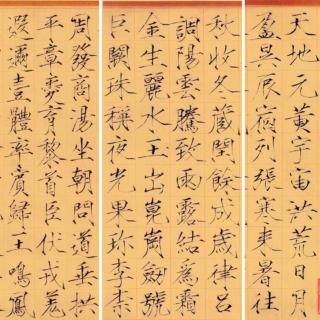 天地元黃宇宙洪荒日月
盈昃辰宿列張寒來暑往
秋收冬藏閏餘成歲律呂
調陽雲騰致雨露結為霜
金生麗水玉出崑崗劍號
巨闕珠稱夜光果珎李柰
周發商湯坐朝問道垂拱
平章愛育黎首臣伏戎羌
遐邇壹體率賓歸王鳴鳳